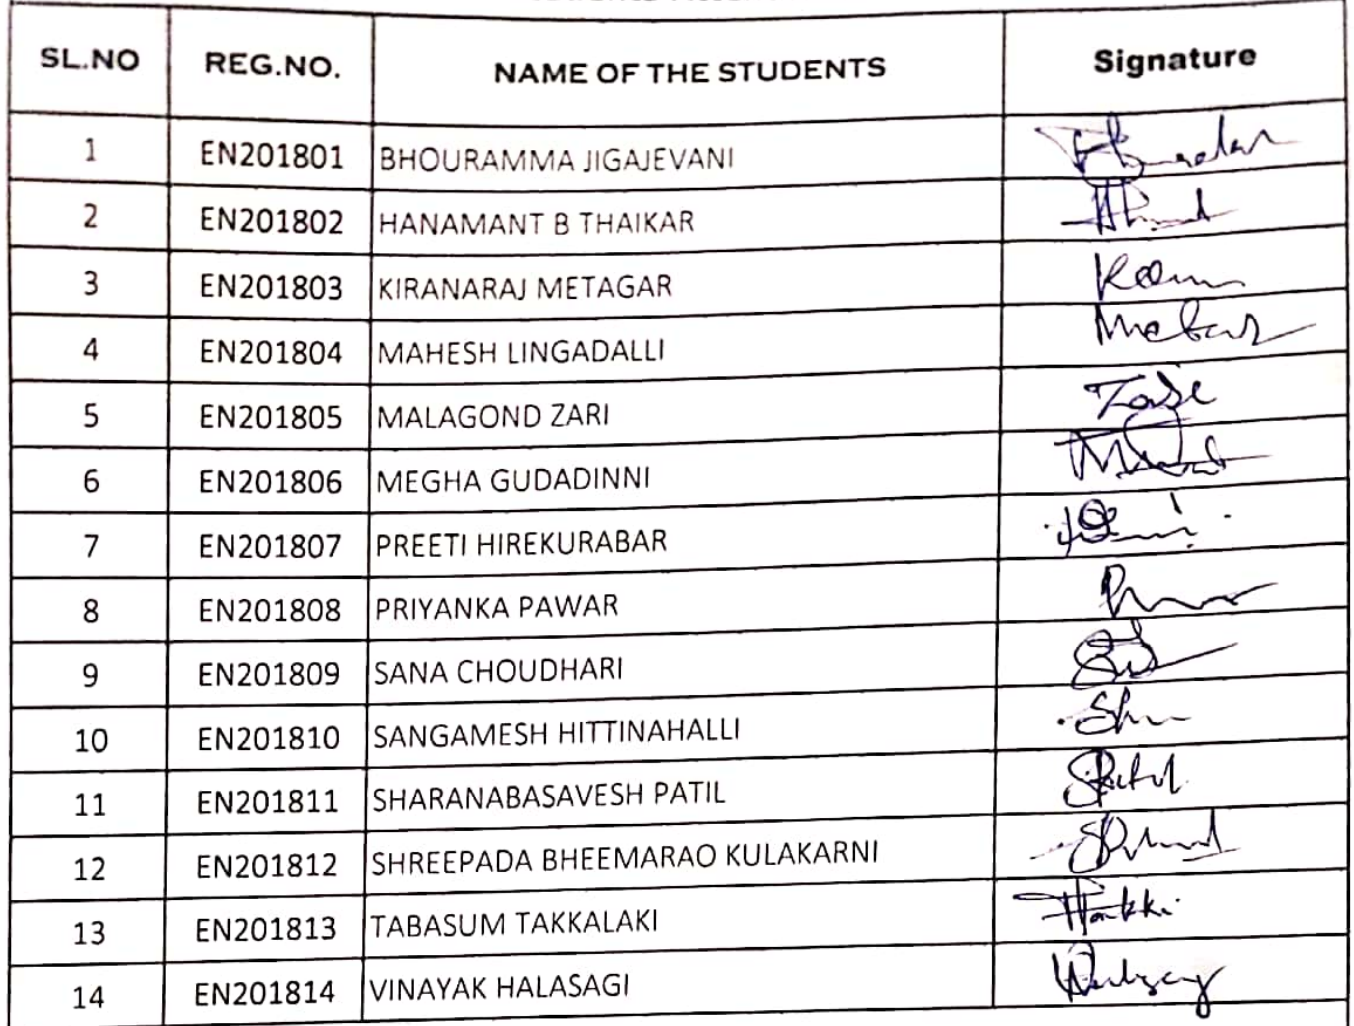 SL.NO REG.NO. NAME OF THE STUDENTS Signature
1 EN201801 BHOURAMMA JIGAJEVANI
2 EN201802 HANAMANT B THAIKAR
3 EN201803 KIRANARAJ METAGAR
4 EN201804 MAHESH LINGADALLI
5 EN201805 MALAGOND ZARI
6 EN201806 MEGHA GUDADINNI
7 EN201807 PREETI HIREKURABAR
8 EN201808 PRIYANKA PAWAR
9 EN201809 SANA CHOUDHARI
10 EN201810 SANGAMESH HITTINAHALLI
11 EN201811 SHARANABASAVESH PATIL
12 EN201812 SHREEPADA BHEEMARAO KULAKARNI
13 EN201813 TABASUM TAKKALAKI
14 EN201814 VINAYAK HALASAGI